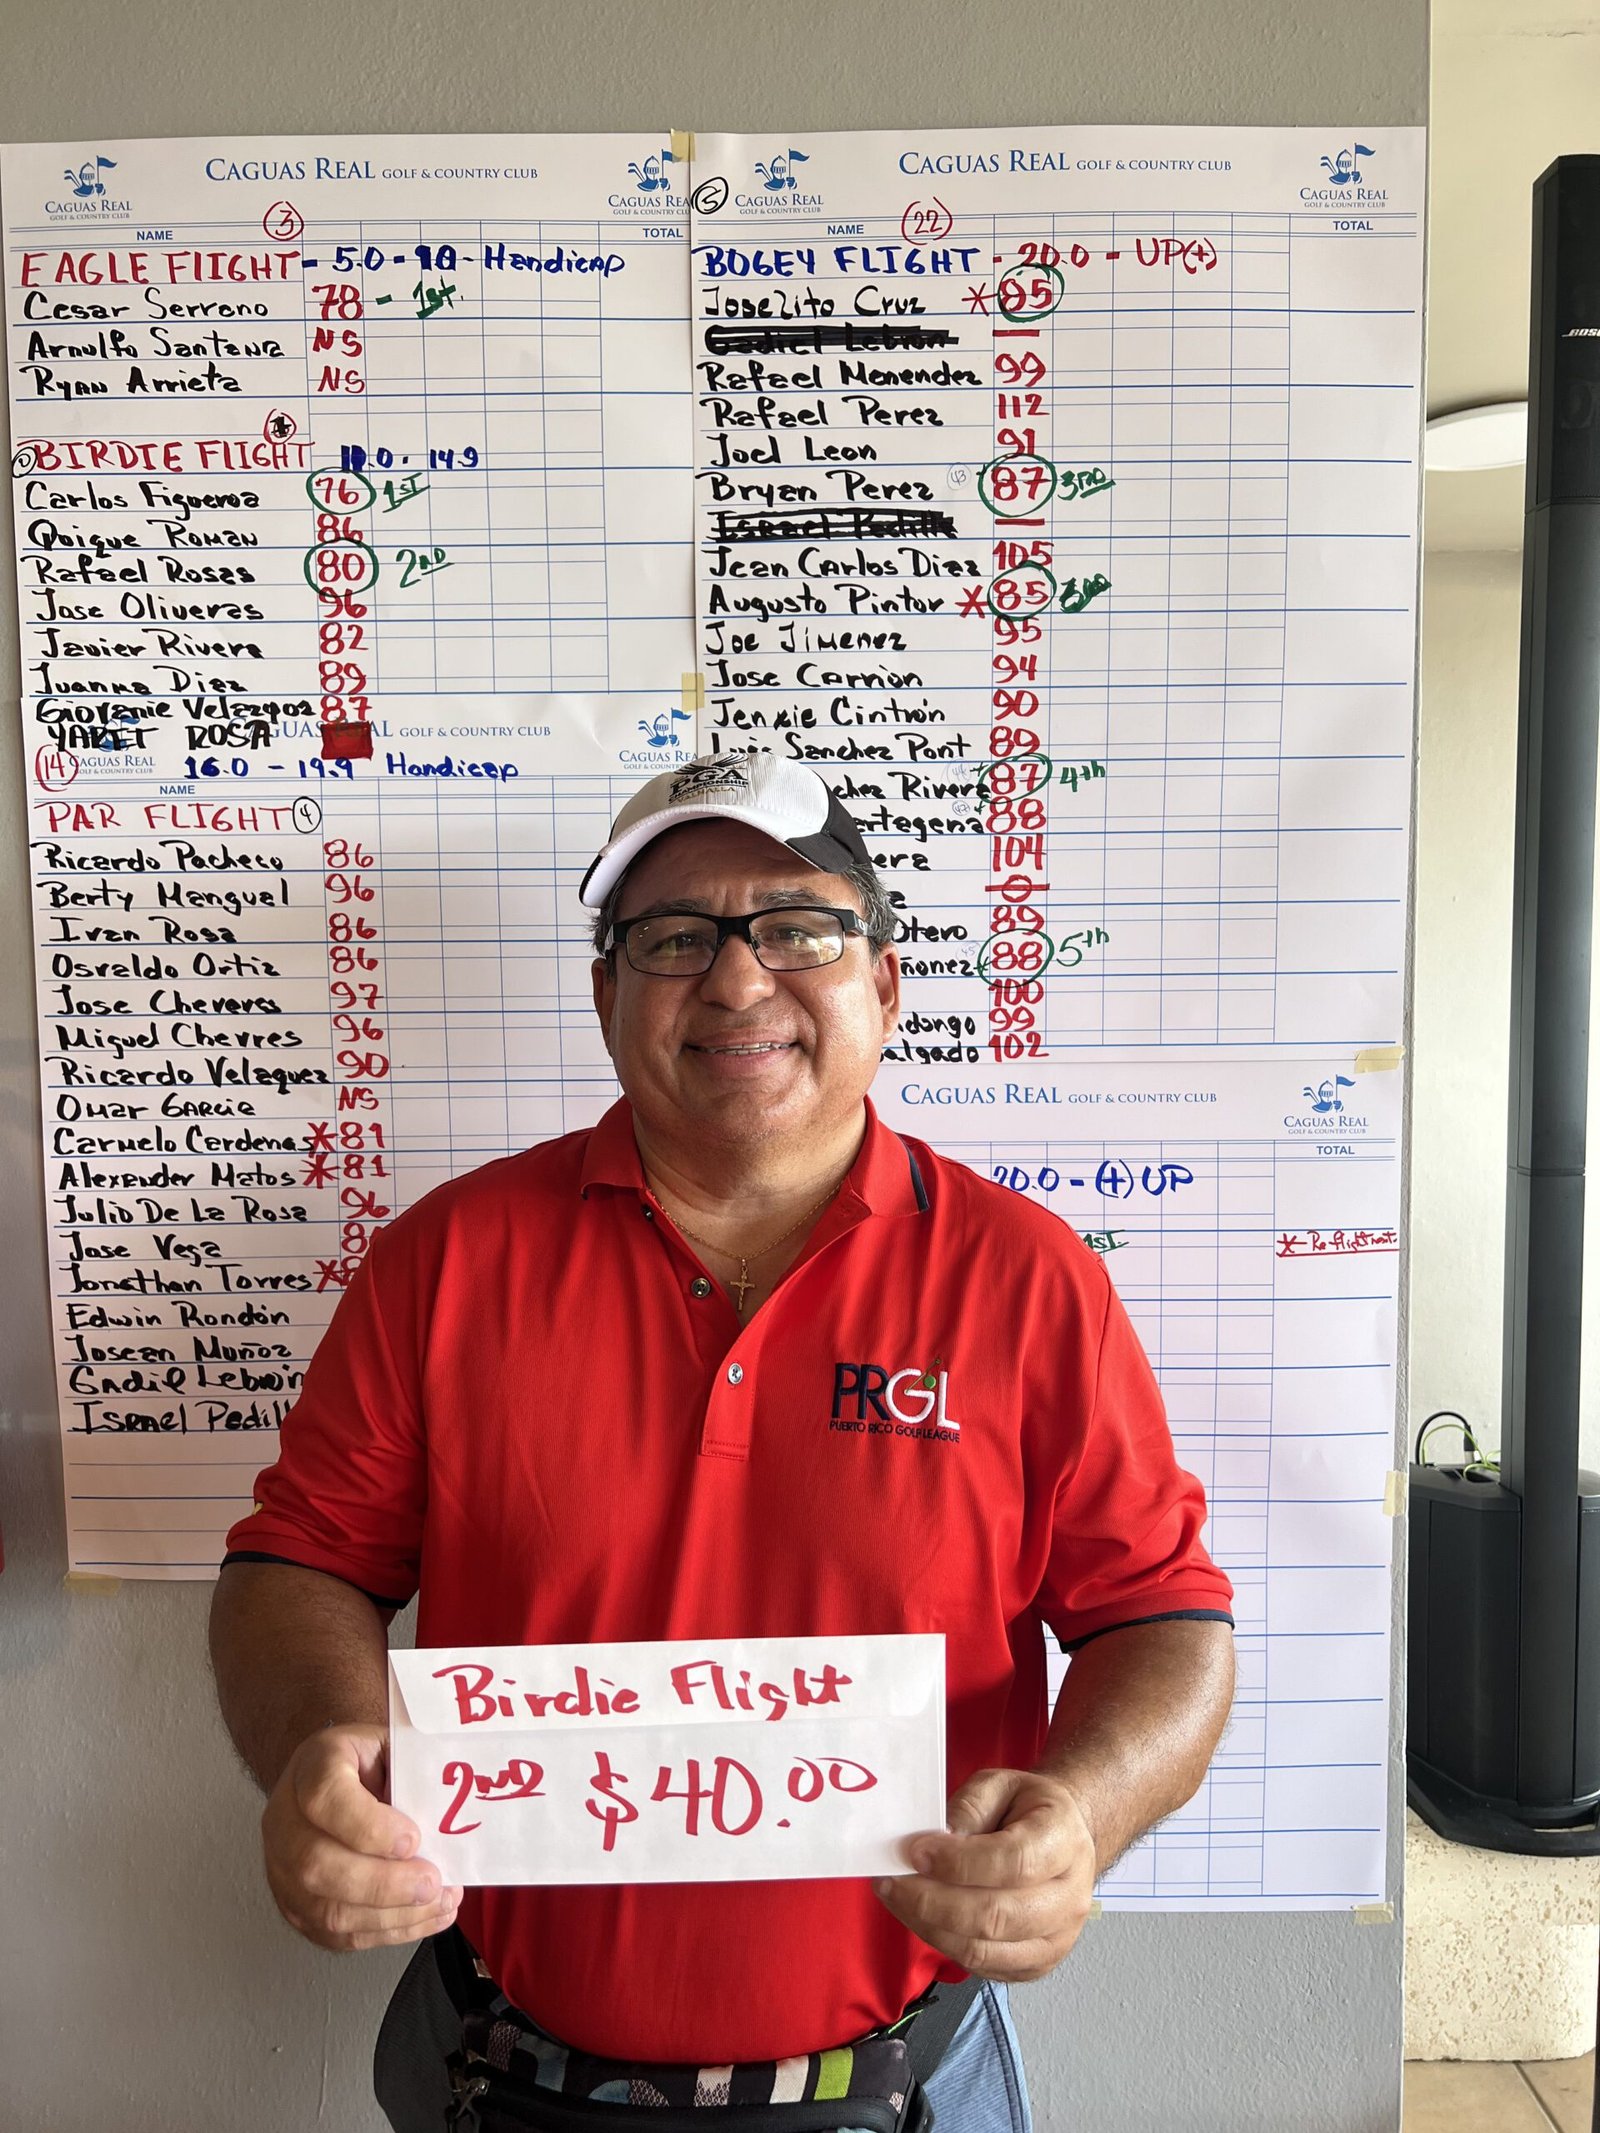 CAGUAS REAL GOLF & COUNTRY CLUB
CAGUAS REAL
GOLF & COUNTRY CLUB
CAGUAS REA
GOLF & COUNTRY CLU
3
NAME
TOTAL
EAGLE FLIGHT - 5.0 - 10 - Handicap
Cesar Serrano 78 - 1st.
Arnulfo Santana NS
Ryan Arrieta NS
BIRDIE FLIGHT 14.9
Carlos Figueroa 76 1ST
Quique ROMAN 86
Rafael Rosas 80 2ND
Jose Oliveras 96
Javier Rivera 82
Juanma Diaz 89
Giovanie Velazquez 87
YARET ROSA
CAGUAS REAL GOLF & COUNTRY CLUB
CAGUAS REAL
GOLF & COUNTRY CLUB
CAGUAS REA
14
16.0 - 19.9 Handicap
NAME
PAR FLIGHT 4
Ricardo Pacheco 86
Berty Mangual 96
Ivan Rosa 86
Osvaldo Ortiz 86
Jose Cheveres 97
Miguel Chevres 96
Ricardo Velazquez 90
Omar GARCIA NS
Carmelo Cardenas * 81
Alexander Matos * 81
Julio De La Rosa 96
Jose Vega
Jonathan Torres *
Edwin Rondón
Josean Muñoz
Gadiel Lebrón
ISRAEL Pedill
CAGUAS REAL GOLF & COUNTRY CLUB
5
CAGUAS REAL
GOLF & COUNTRY CLUB
CAGUAS REAL
GOLF & COUNTRY CLUB
22
NAME
TOTAL
BOGEY FLIGHT - 20.0 - UP(+)
Joselito Cruz * 85
Gadiel Lebron —
Rafael Menendez 99
Rafael Perez 112
Joel Leon 91
Bryan Perez 87 3RD
Israel Pedilla —
Jean Carlos Diaz 105
Augusto Pintor * 85
Joe Jimenez 95
Jose Carrión 94
Jenxie Cintrón 90
Luis Sanchez Pont 89
chez Rivera 87 4th
artagena 88
era 104
a
Otero 89
ñonez 88 5th
100
ndongo 99
algado 102
CAGUAS REAL GOLF & COUNTRY CLUB
CAGUAS REAL
GOLF & COUNTRY CLUB
TOTAL
20.0 - (+) UP
1ST.
PGA
CHAMPIONSHIP
VALHALLA
BOSE
PRGL
PUERTO RICO GOLF LEAGUE
Birdie Flight
2ND $40.00